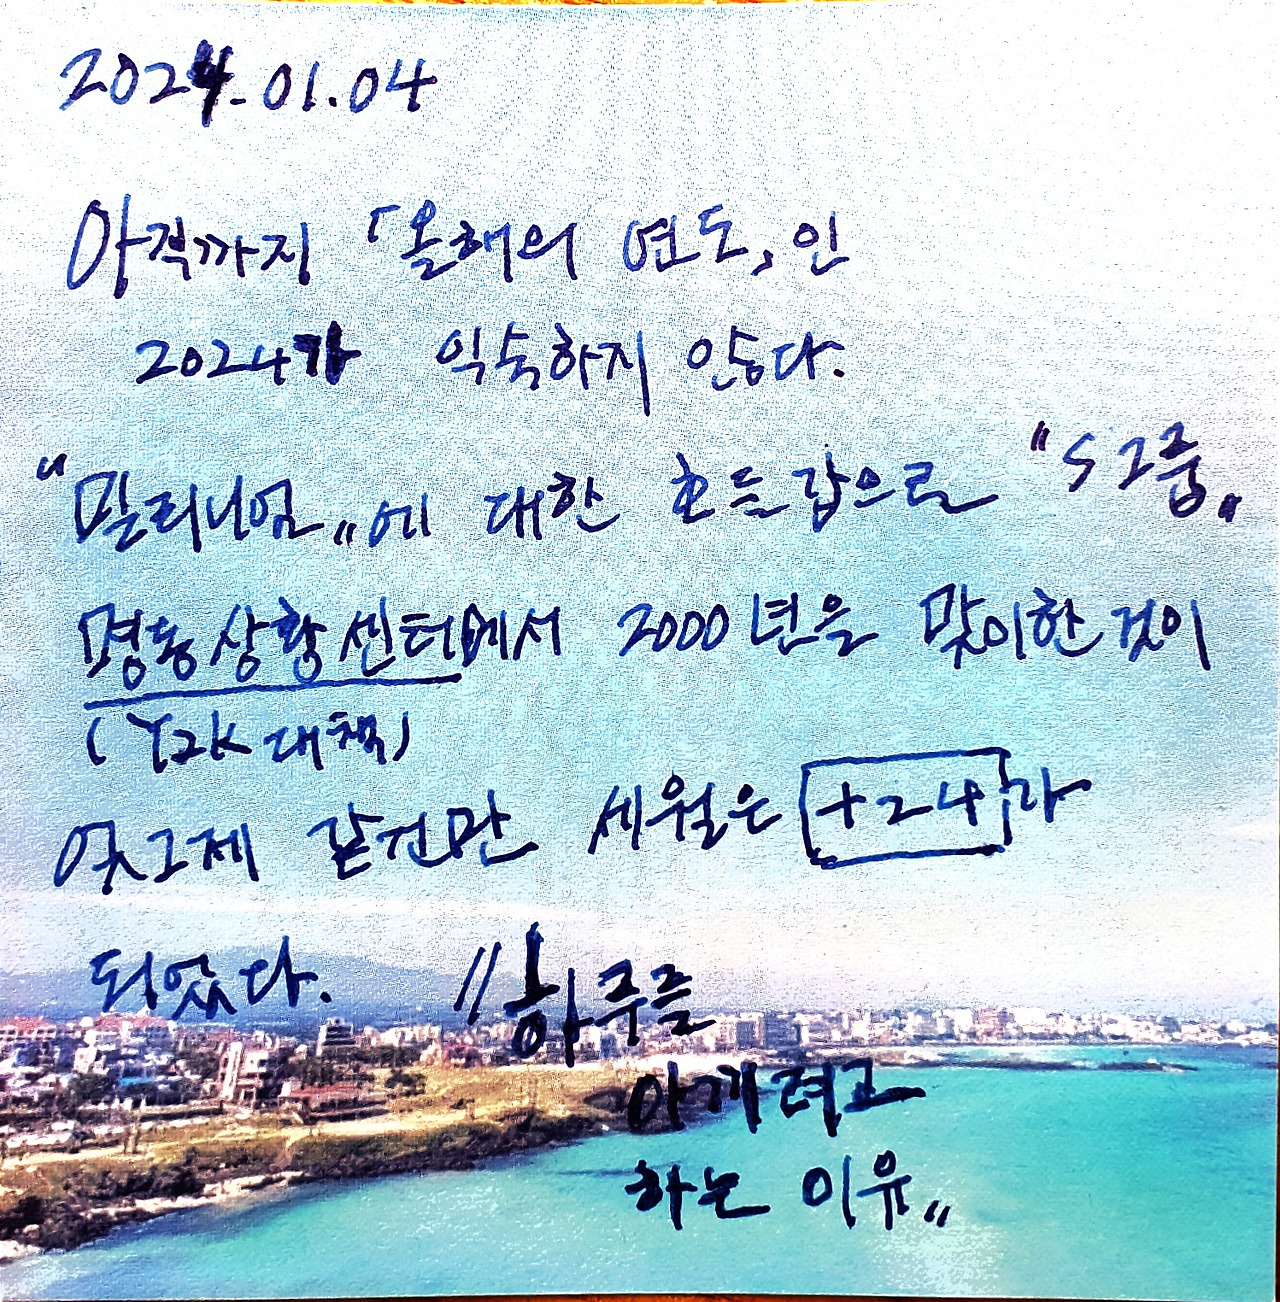 2024.01.04
아직까지 「올해의 연도」인
2024가 익숙하지 않다.
"밀리니엄"에 대한 호들갑으로 "S그룹"
명동상황센터에서 2000년을 맞이한 것이
(Y2K 대책)
엊그제 같건만 세월은 +24가
되었다. "하루를
아끼려고
하는 이유"